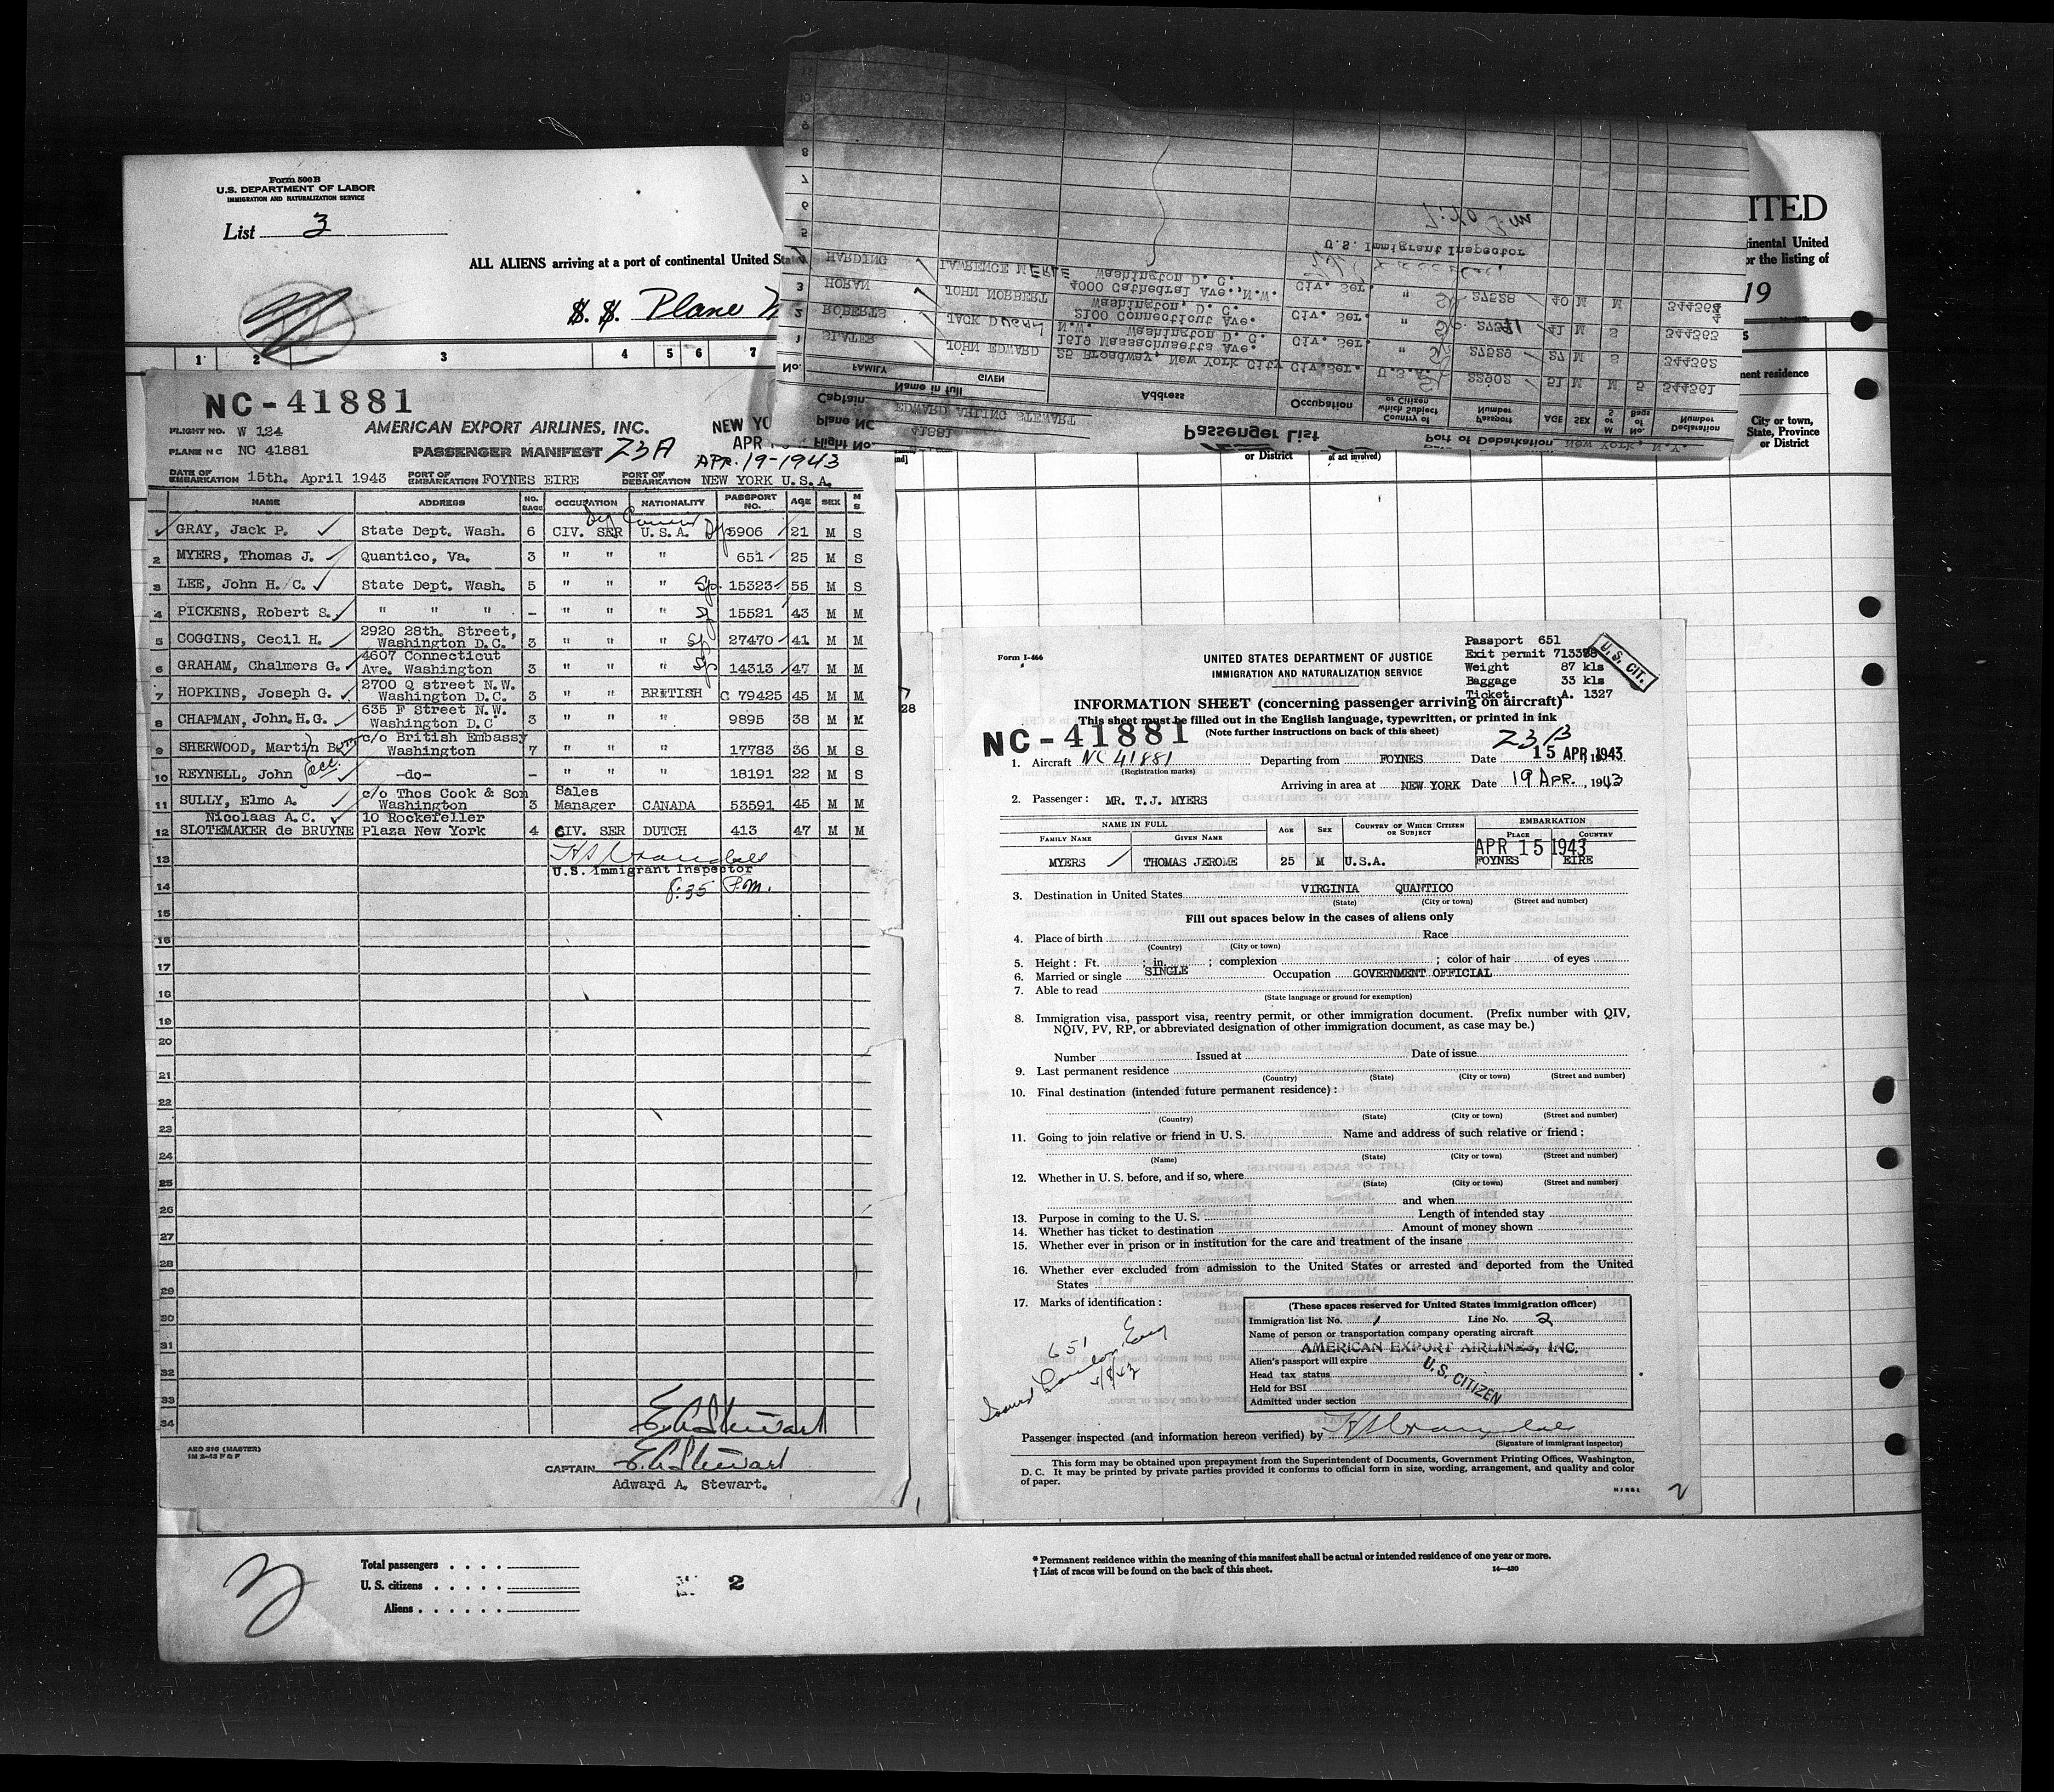 Form 500 B
U.S. DEPARTMENT OF LABOR
IMMIGRATION AND NATURALIZATION SERVICE
List 3
ALL ALIENS arriving at a port of continental United
S. S. Plane
1 2 3 4 5 6 7
NC-41881
FLIGHT NO. W 124
AMERICAN EXPORT AIRLINES, INC.
NEW YO
APR
PLANE NC NC 41881
PASSENGER MANIFEST 23A
APR. 19-1943
DATE OF EMBARKATION 15th. April 1943 PORT OF EMBARKATION FOYNES EIRE PORT OF DEBARKATION NEW YORK U.S.A.
NAME ADDRESS NO. BAGS OCCUPATION NATIONALITY PASSPORT NO. AGE SEX M S
1 GRAY, Jack P. State Dept. Wash. 6 CIV. SER U.S.A. 5906 21 M S
2 MYERS, Thomas J. Quantico, Va. 3 " " " 651 25 M S
3 LEE, John H. C. State Dept. Wash. 5 " " " Sp. 15323 55 M S
4 PICKENS, Robert S. " " " - " " " Sp 15521 43 M M
5 COGGINS, Cecil H. 2920 28th. Street, Washington D.C. 3 " " " Sp 27470 41 M M
6 GRAHAM, Chalmers G. 4607 Connecticut Ave. Washington 3 " " " Sp 14313 47 M M
7 HOPKINS, Joseph G. 2700 Q street N.W. Washington D.C. 3 " " BRITISH C 79425 45 M M
8 CHAPMAN, John.H.G. 635 F Street N.W. Washington D.C 3 " " " 9895 38 M M
9 SHERWOOD, Martin B. c/o British Embassy Washington 7 " " " 17783 36 M S
10 REYNELL, John -do- - " " " 18191 22 M S
11 SULLY, Elmo A. c/o Thos Cook & Son Washington 3 Sales Manager CANADA 53591 45 M M
12 Nicolaas A.C. SLOTEMAKER de BRUYNE 10 Rockefeller Plaza New York 4 CIV. SER DUTCH 413 47 M M
13
U.S. Immigrant Inspector
14 8:35 P.M.
15
16
17
18
19
20
21
22
23
24
25
26
27
28
29
30
31
32
33
34
E.A. Stewart
AEO 310 (MASTER)
CAPTAIN E.A. Stewart
Adward A. Stewart.
1
Total passengers
U. S. citizens
Aliens
2
Passenger List
Port of Departation New York, N.Y.
Captain EDWARD AHLING STEWART
Plane NC 41881
Flight No.
No. Name in full FAMILY GIVEN Address Occupation Country of which Subject or Citizen Passport Number AGE SEX M or S No. Bags of Declaration Number
1 SLATER JOHN EDWARD 25 Broadway, New York City Civ.Ser. U.S.A. 22902 51 M M 5 544561
2 ROBERTS JACK DUGAN 1619 Massachusetts Ave. N.W. Washington D. C. Civ. Ser. " 27529 27 M S 544562
3 HORAN JOHN NORBERT 2100 Connecticut Ave. Washington, D. C. Civ. Ser. " 41 M S 544563
4 HARDING LAWRENCE MERLE 4000 Cathedral Ave., N.W. Washington D. C. Civ. Ser. " 27528 40 M M 544564
U.S. Immigrant Inspector
5
6
7
8
9
10
11
ITED
inental United
or the listing of
19
nent residence
City or town, State, Province or District
or District
of act involved)
28
Form I-466
UNITED STATES DEPARTMENT OF JUSTICE
IMMIGRATION AND NATURALIZATION SERVICE
Passport 651
Exit permit
Weight 87 kls
Baggage 33 kls
Ticket A. 1327
U.S. CIT.
INFORMATION SHEET (concerning passenger arriving on aircraft)
This sheet must be filled out in the English language, typewritten, or printed in ink
(Note further instructions on back of this sheet)
NC-41881
23 B
1. Aircraft NC 41881 Departing from FOYNES Date 15 APR 1943
(Registration marks)
Arriving in area at NEW YORK Date 19 APR., 1943
2. Passenger: MR. T.J. MYERS
NAME IN FULL AGE SEX COUNTRY OF WHICH CITIZEN OR SUBJECT EMBARKATION
FAMILY NAME GIVEN NAME PLACE COUNTRY
APR 15 1943
MYERS THOMAS JEROME 25 M U.S.A. FOYNES EIRE
3. Destination in United States VIRGINIA QUANTICO
(State) (City or town) (Street and number)
Fill out spaces below in the cases of aliens only
4. Place of birth Race
(Country) (City or town)
5. Height: Ft. ; in. ; complexion ; color of hair of eyes
6. Married or single SINGLE Occupation GOVERNMENT OFFICIAL
7. Able to read
(State language or ground for exemption)
8. Immigration visa, passport visa, reentry permit, or other immigration document. (Prefix number with QIV, NQIV, PV, RP, or abbreviated designation of other immigration document, as case may be.)
Number Issued at Date of issue
9. Last permanent residence
(Country) (State) (City or town) (Street and number)
10. Final destination (intended future permanent residence):
(Country) (State) (City or town) (Street and number)
11. Going to join relative or friend in U. S. Name and address of such relative or friend:
(Name) (State) (City or town) (Street and number)
12. Whether in U. S. before, and if so, where
(State) (City or town) (Street and number)
and when
13. Purpose in coming to the U. S. Length of intended stay
14. Whether has ticket to destination Amount of money shown
15. Whether ever in prison or in institution for the care and treatment of the insane
16. Whether ever excluded from admission to the United States or arrested and deported from the United States
17. Marks of identification:
651
(These spaces reserved for United States immigration officer)
Immigration list No. 1 Line No. 2
Name of person or transportation company operating aircraft
AMERICAN EXPORT AIRLINES, INC.
Alien's passport will expire
Head tax status
Held for BSI
Admitted under section
U.S. CITIZEN
Passenger inspected (and information hereon verified) by
(Signature of immigrant inspector)
This form may be obtained upon prepayment from the Superintendent of Documents, Government Printing Offices, Washington, D. C. It may be printed by private parties provided it conforms to official form in size, wording, arrangement, and quality and color of paper.
2
* Permanent residence within the meaning of this manifest shall be actual or intended residence of one year or more.
† List of races will be found on the back of this sheet.